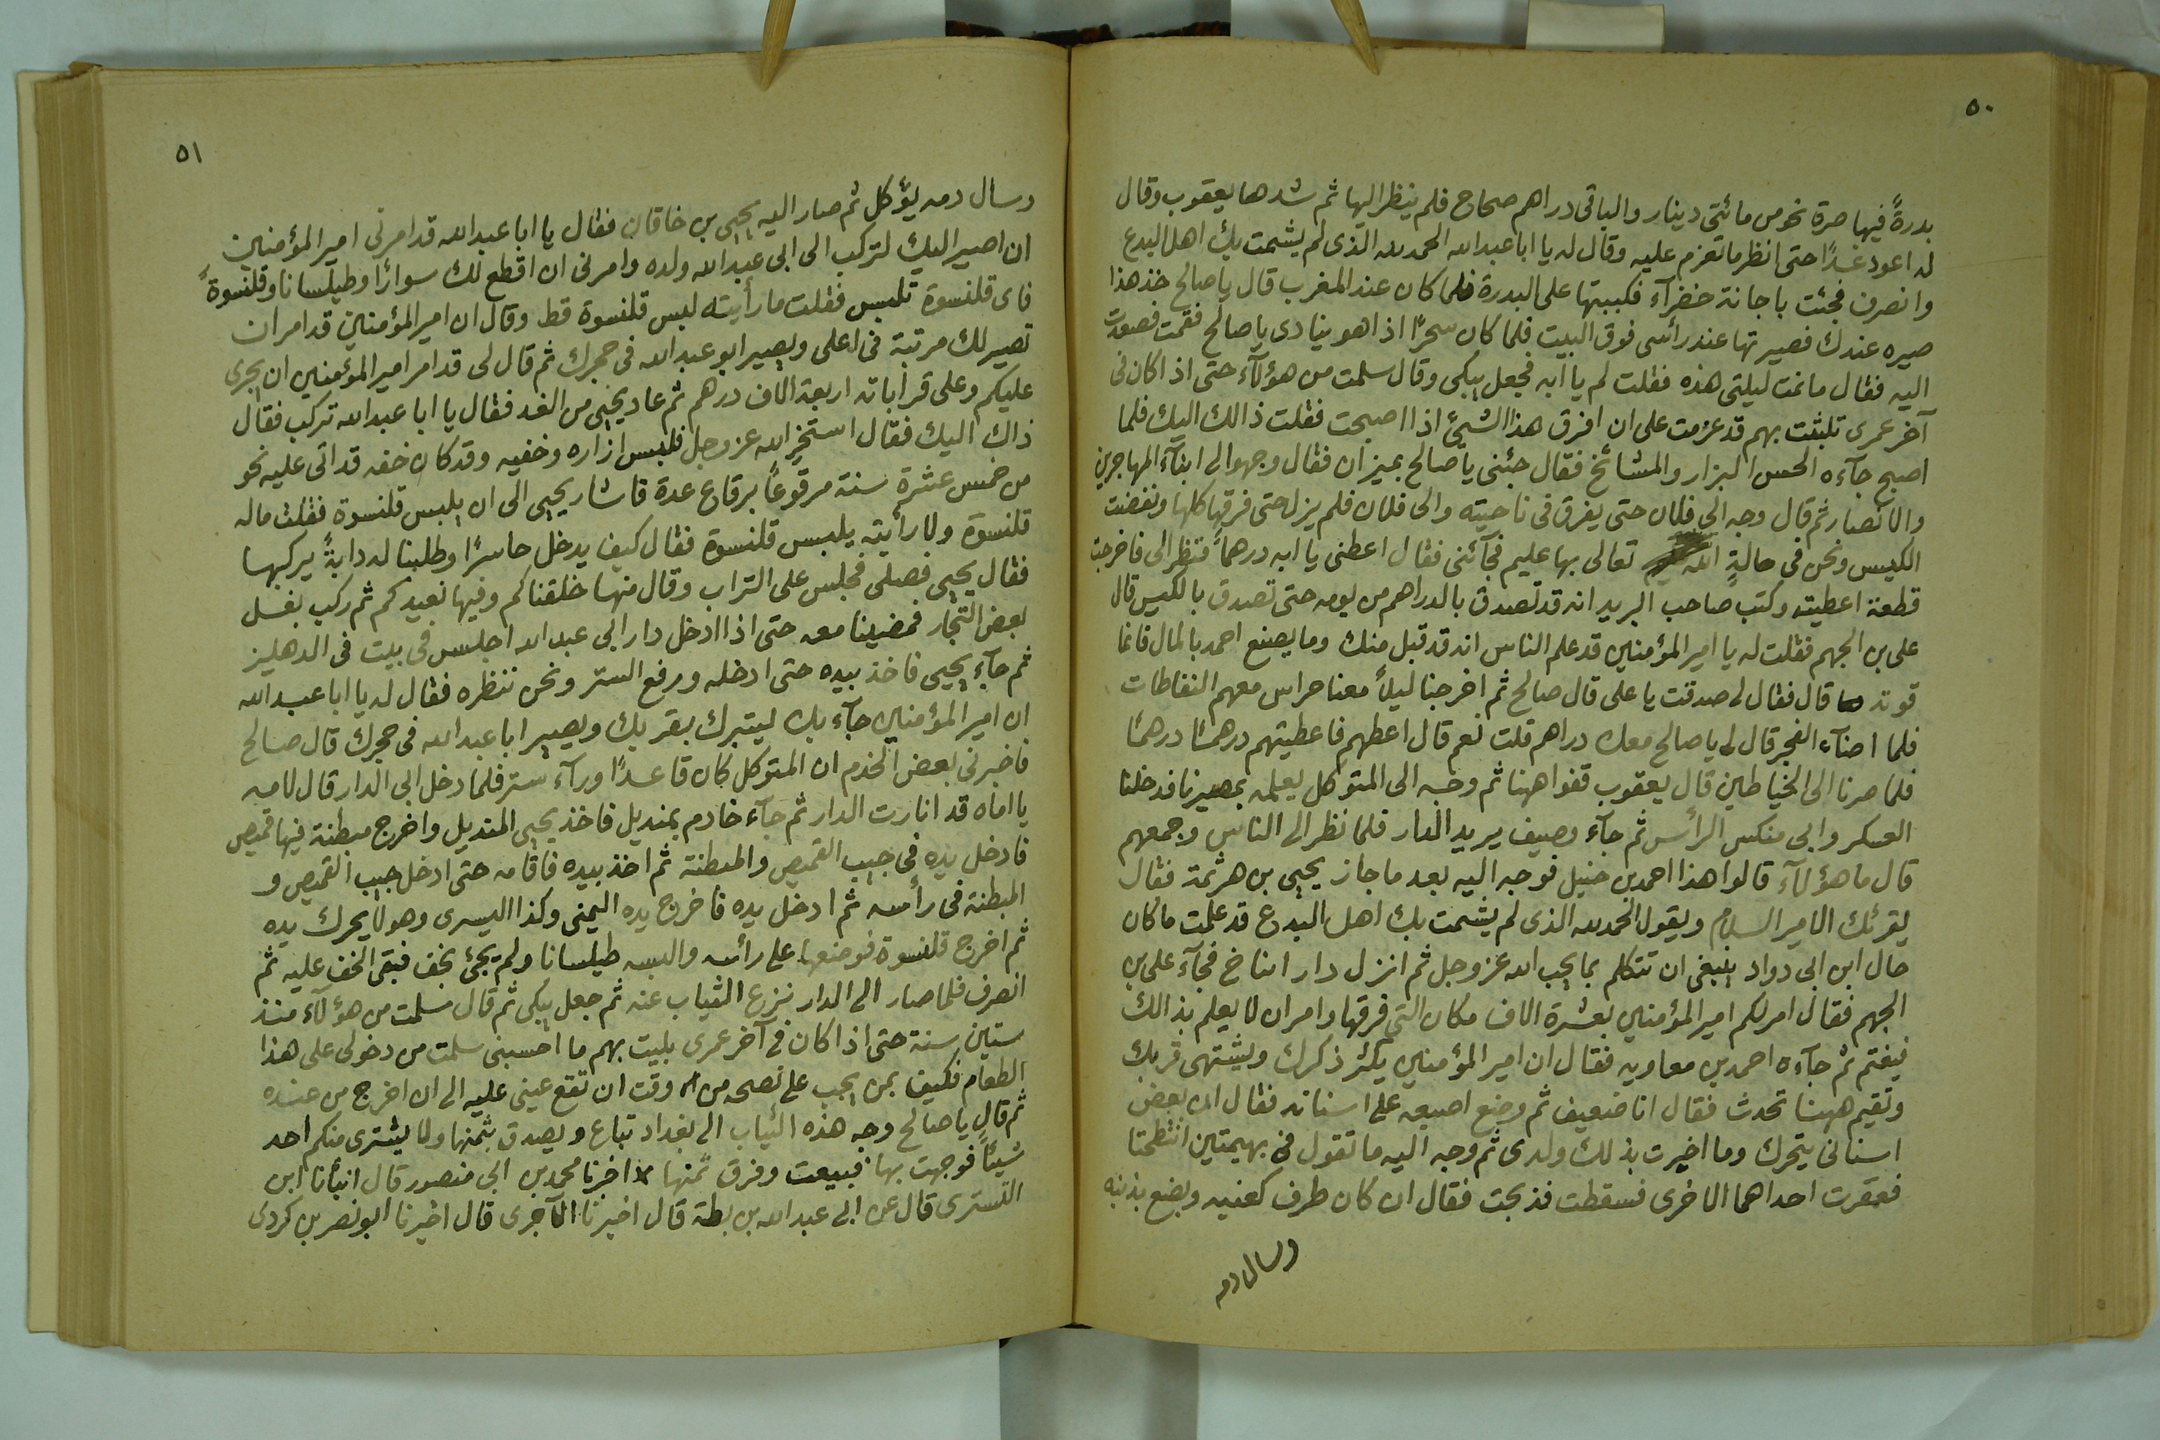 ٥٠
بدرةً فيها صرة نحو من مائتى دينار والباقى دراهم صحاح فلم ينظر اليها ثم شدها يعقوب وقال
له اعود غدًا حتى انظر ما تعزم عليه وقال له يا ابا عبدالله الحمد لله الذى لم يشمت بك اهل البدع
وانصرف فجئت باجانة خضرآء فكببتها على البدرة فلما كان عند المغرب قال يا صالح خذ هذا
صيره عندك فصيرتها عند رأسى فوق البيت فلما كان سحرًا اذا هو ينادى يا صالح فقمت فصعدت
اليه فقال ما نمت ليلتى هذه فقلت لم يا ابه فجعل يبكى وقال سلمت من هؤلآء حتى اذا كان فى
آخر عمرى تلبثت بهم قد عزمت على ان افرق هذا الشئ اذا اصبحت فقلت ذالك اليك فلما
اصبح جآءه الحسن البزار والمشائخ فقال جئنى يا صالح بميزان فقال وجهوا الى ابنآء المهاجرين
والانصار ثم قال وجه الى فلان حتى يفرق فى ناحيته والى فلان فلم يزل حتى فرقها كلها ونفضت
الكيس ونحن فى حالةٍ الله تعالى بها عليم فجآئنى فقال اعطنى يا ابه درهمًا فنظر الى فاخرجت
قطعة اعطيته وكتب صاحب البريد انه قد تصدق بالدراهم من يومه حتى تصدق بالكيس قال
على بن الجهم فقلت له يا امير المؤمنين قد علم الناس انه قد قبل منك وما يصنع احمد بالمال فانما
قوته قال فقال لى صدقت يا على قال صالح ثم اخرجنا ليلاً معنا حراس معهم النفاطات
فلما اضآء الفجر قال لى يا صالح معك دراهم قلت نعم قال اعطهم فاعطيتهم درهمًا درهمًا
فلما صرنا الى الخياطين قال يعقوب قفوا ههنا ثم وجه الى المتوكل يعلمه بمصيرنا فدخلنا
العسكر وابى منكس الرأس ثم جآء وصيف يريد الدار فلما نظر الى الناس وجمعهم
قال ما هؤلآء قالوا هذا احمد بن حنبل فوجه اليه بعد ما جاز يحيى بن هرثمة فقال
يقرئك الامير السلام ويقول الحمد لله الذى لم يشمت بك اهل البدع قد علمت ما كان
حال ابن ابى دواد ينبغى ان تتكلم بما يجب الله عز وجل ثم انزل دار ايتاخ فجآء على بن
الجهم فقال امر لكم امير المؤمنين بعشرة الاف مكان التى فرقها وامر ان لا يعلم بذالك
فيغتم ثم جآءه احمد بن معاويه فقال ان امير المؤمنين يكثر ذكرك ويشتهى قربك
وتقيم ههنا تحدث فقال انا ضعيف ثم وضع اصبعه على اسنانه فقال ان بعض
اسنانى يتحرك وما اخبرت بذلك ولدى ثم وجه اليه ما تقول فى بهيمتين انتطحتا
فعقرت احداهما الاخرى فسقطت فذبحت فقال ان كان طرف كعنيه ويضع بذنبه
وسال دمه
٥١
وسال دمه يؤكل ثم صار اليه يحيى بن خاقان فقال يا ابا عبدالله قد امرنى امير المؤمنين
ان اصير اليك لتركب الى ابى عبدالله ولده وامرنى ان اقطع لك سوادًا وطيلسانا وقلنسوةً
فاى قلنسوة تلبس فقلت ما رأيته لبس قلنسوة قط وقال ان امير المؤمنين قد امر ان
تصير لك مرتبة فى اعلى ويصير ابو عبدالله فى حجرك ثم قال لى قد امر امير المؤمنين ان يجرى
عليكم وعلى قراباته اربعة الاف درهم ثم عاد يحيى من الغد فقال يا ابا عبدالله تركب فقال
ذاك اليك فقال استخير الله عز وجل فلبس ازاره وخفيه وقد كان خفه قد اتى عليه نحو
من خمس عشرة سنة مرقوعًا برقاع عدة فاشار يحيى الى ان يلبس قلنسوة فقلت ماله
قلنسوة ولا رأيته يلبس قلنسوة فقال كيف يدخل حاسرًا وطلبنا له دابةً يركبها
فقال يحيى فصلى فجلس على التراب وقال منها خلقناكم وفيها نعيدكم ثم ركب بغل
بعض التجار فمضينا معه حتى اذا ادخل دار ابى عبدالله اجلس فى بيت فى الدهليز
ثم جآء يحيى فاخذ بيده حتى ادخله ورفع الستر ونحن ننظره فقال له يا ابا عبدالله
ان امير المؤمنين جآء بك ليتبرك بقربك ويصير ابا عبدالله فى حجرك قال صالح
فاخبرنى بعض الخدم ان المتوكل كان قاعدًا ورآء ستر فلما دخل ابى الدار قال لامه
يا اماه قد انارت الدار ثم جآء خادم بمنديل فاخذ يحيى المنديل واخرج مبطنة فيها قميص
فادخل يده فى جيب القميص والمبطنة ثم اخذ بيده فاقامه حتى ادخل جيب القميص و
المبطنة فى رأسه ثم ادخل يده فاخرج يده اليمنى وكذا اليسرى وهو لا يحرك يده
ثم اخرج قلنسوة فوضعها على رأسه والبسه طيلسانا ولم يجئ بخف فبقى الخف عليه ثم
انصرف فلما صار الى الدار نزع الثياب عنه ثم جعل يبكى ثم قال سلمت من هؤلآء منذ
ستين سنة حتى اذا كان فى آخر عمرى بليت بهم ما احسبنى سلمت من دخولى على هذا
الطعام فكيف بمن يجب على نصحه من وقت ان تقع عينى عليه الى ان اخرج من عنده
ثم قال يا صالح وجه هذه الثياب الى بغداد تباع ويصدق بثمنها ولا يشترى منكم احد
شيئًا فوجهت بها فبيعت وفرق ثمنها اخبرنا محمد بن ابى منصور قال انبأنا ابن
التسترى قال عن ابى عبدالله بن بطة قال اخبرنا الآجرى قال اخبرنا ابو نصر بن كردى